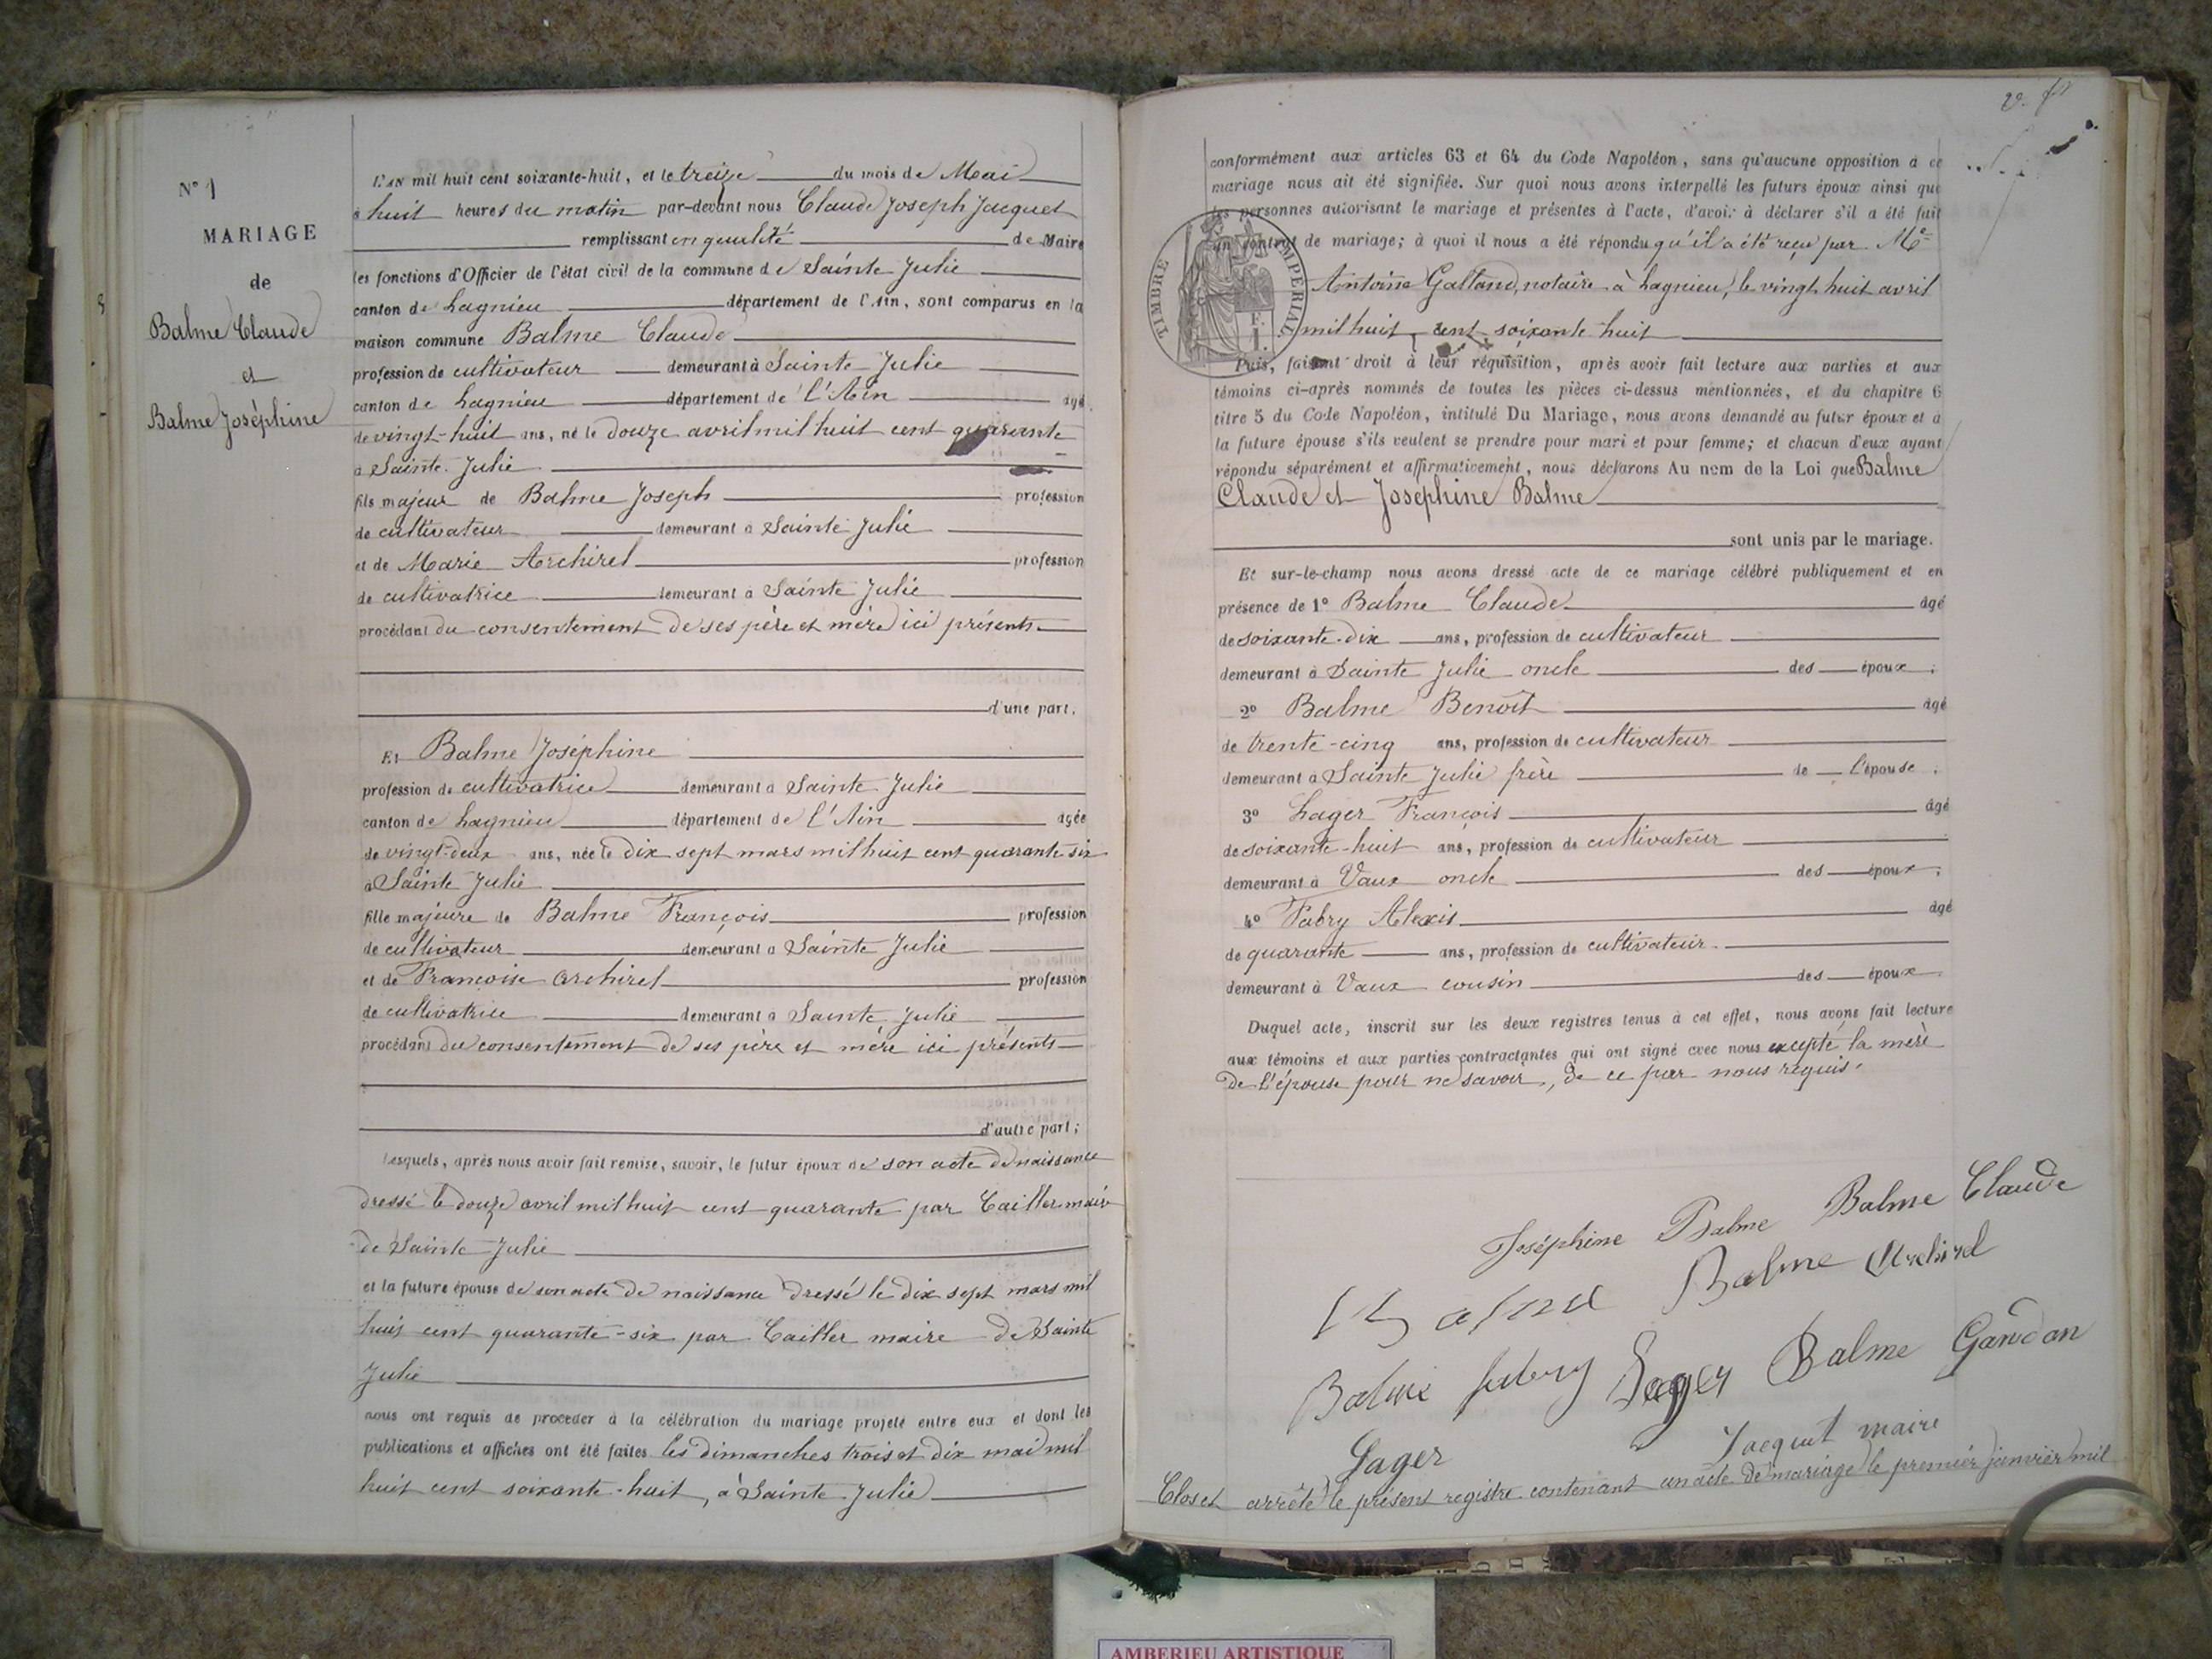 N° 1
MARIAGE
de
Balme Claude
et
Balme Joséphine
L'AN mil huit cent soixante-huit, et le treize du mois de Mai
à huit heures du matin par-devant nous Claude Joseph Jacquet
remplissant en qualité de Maire
les fonctions d'Officier de l'état civil de la commune de Sainte Julie
canton de Lagnieu département de l'Ain, sont comparus en la
maison commune Balme Claude
profession de cultivateur demeurant à Sainte Julie
canton de Lagnieu département de l'Ain âgé
de vingt-huit ans, né le douze avril mil huit cent quarante
à Sainte Julie
fils majeur de Balme Joseph profession
de cultivateur demeurant à Sainte Julie
et de Marie Archirel profession
de cultivatrice demeurant à Sainte Julie
procédant du consentement de ses père et mère ici présents
d'une part.
Et Balme Joséphine
profession de cultivatrice demeurant à Sainte Julie
canton de Lagnieu département de l'Ain âgée
de vingt-deux ans, née le dix sept mars mil huit cent quarante six
à Sainte Julie
fille majeure de Balme François profession
de cultivateur demeurant à Sainte Julie
et de Françoise Archirel profession
de cultivatrice demeurant à Sainte Julie
procédant du consentement de ses père et mère ici présents
d'autre part;
Lesquels, après nous avoir fait remise, savoir, le futur époux de son acte de naissance
dressé le douze avril mil huit cent quarante par Cailler maire
de Sainte Julie
et la future épouse de son acte de naissance dressé le dix sept mars mil
huit cent quarante-six par Cailler maire de Sainte
Julie
nous ont requis de procéder à la célébration du mariage projeté entre eux et dont les
publications et affiches ont été faites les dimanches trois et dix mai mil
huit cent soixante-huit, à Sainte Julie
conformément aux articles 63 et 64 du Code Napoléon, sans qu'aucune opposition à ce
mariage nous ait été signifiée. Sur quoi nous avons interpellé les futurs époux ainsi que
les personnes autorisant le mariage et présentes à l'acte, d'avoir à déclarer s'il a été fait
un contrat de mariage; à quoi il nous a été répondu qu'il a été reçu par Me
TIMBRE IMPERIAL
F. 1.
Antoine Galland, notaire à Lagnieu, le vingt huit avril
mil huit cent soixante huit
Puis, faisant droit à leur réquisition, après avoir fait lecture aux parties et aux
témoins ci-après nommés de toutes les pièces ci-dessus mentionnées, et du chapitre 6
titre 5 du Code Napoléon, intitulé Du Mariage, nous avons demandé au futur époux et à
la future épouse s'ils veulent se prendre pour mari et pour femme; et chacun d'eux ayant
répondu séparément et affirmativement, nous déclarons Au nom de la Loi que Balme
Claude et Joséphine Balme
sont unis par le mariage.
Et sur-le-champ nous avons dressé acte de ce mariage célébré publiquement et en
présence de 1° Balme Claude âgé
de soixante-dix ans, profession de cultivateur
demeurant à Sainte Julie oncle des époux ;
2° Balme Benoît âgé
de trente-cinq ans, profession de cultivateur
demeurant à Sainte Julie frère de l'épouse ;
3° Lager François âgé
de soixante-huit ans, profession de cultivateur
demeurant à Vaux oncle des époux ;
4° Fabry Alexis âgé
de quarante ans, profession de cultivateur
demeurant à Vaux cousin des époux
Duquel acte, inscrit sur les deux registres tenus à cet effet, nous avons fait lecture
aux témoins et aux parties contractantes qui ont signé avec nous excepté la mère
de l'épouse pour ne savoir, de ce par nous requis.
Joséphine Balme Balme Claude
Balme Balme Archirel
Balme fabry Lager Balme Gandon
Lager Jacquet maire
Clos et arrêté le présent registre contenant un acte de mariage le premier janvier mil
AMBERIEU ARTISTIQUE